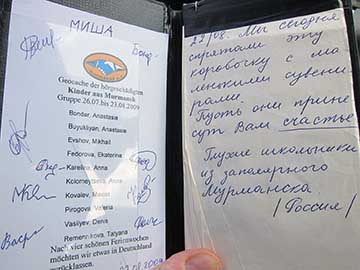 МИША
Geocache der hörgeschädigten
Kinder aus Murmansk
Gruppe 26.07. bis 23.08.2009
Bondar, Anastasia
Buyuklyan, Anastasia
Evshov, Mikhail
Fedorova, Ekaterina
Karelina, Anna
Kolomeytseva,
Kovalev, Maxim
Pirogova, Valeria
Vasilyev, Denis
Remennikova, Tatyana
Nach vier schönen Ferienwochen
möchten wir etwas in Deutschland
zurücklassen.
.08.2009
22/08. Мы сегодня
спрятали эту
коробочку с ма-
ленькими сувени-
рами.
Пусть они прине-
сут Вам счастье
Глухие школьники
из заполярного
Мурманска.
/Россия/